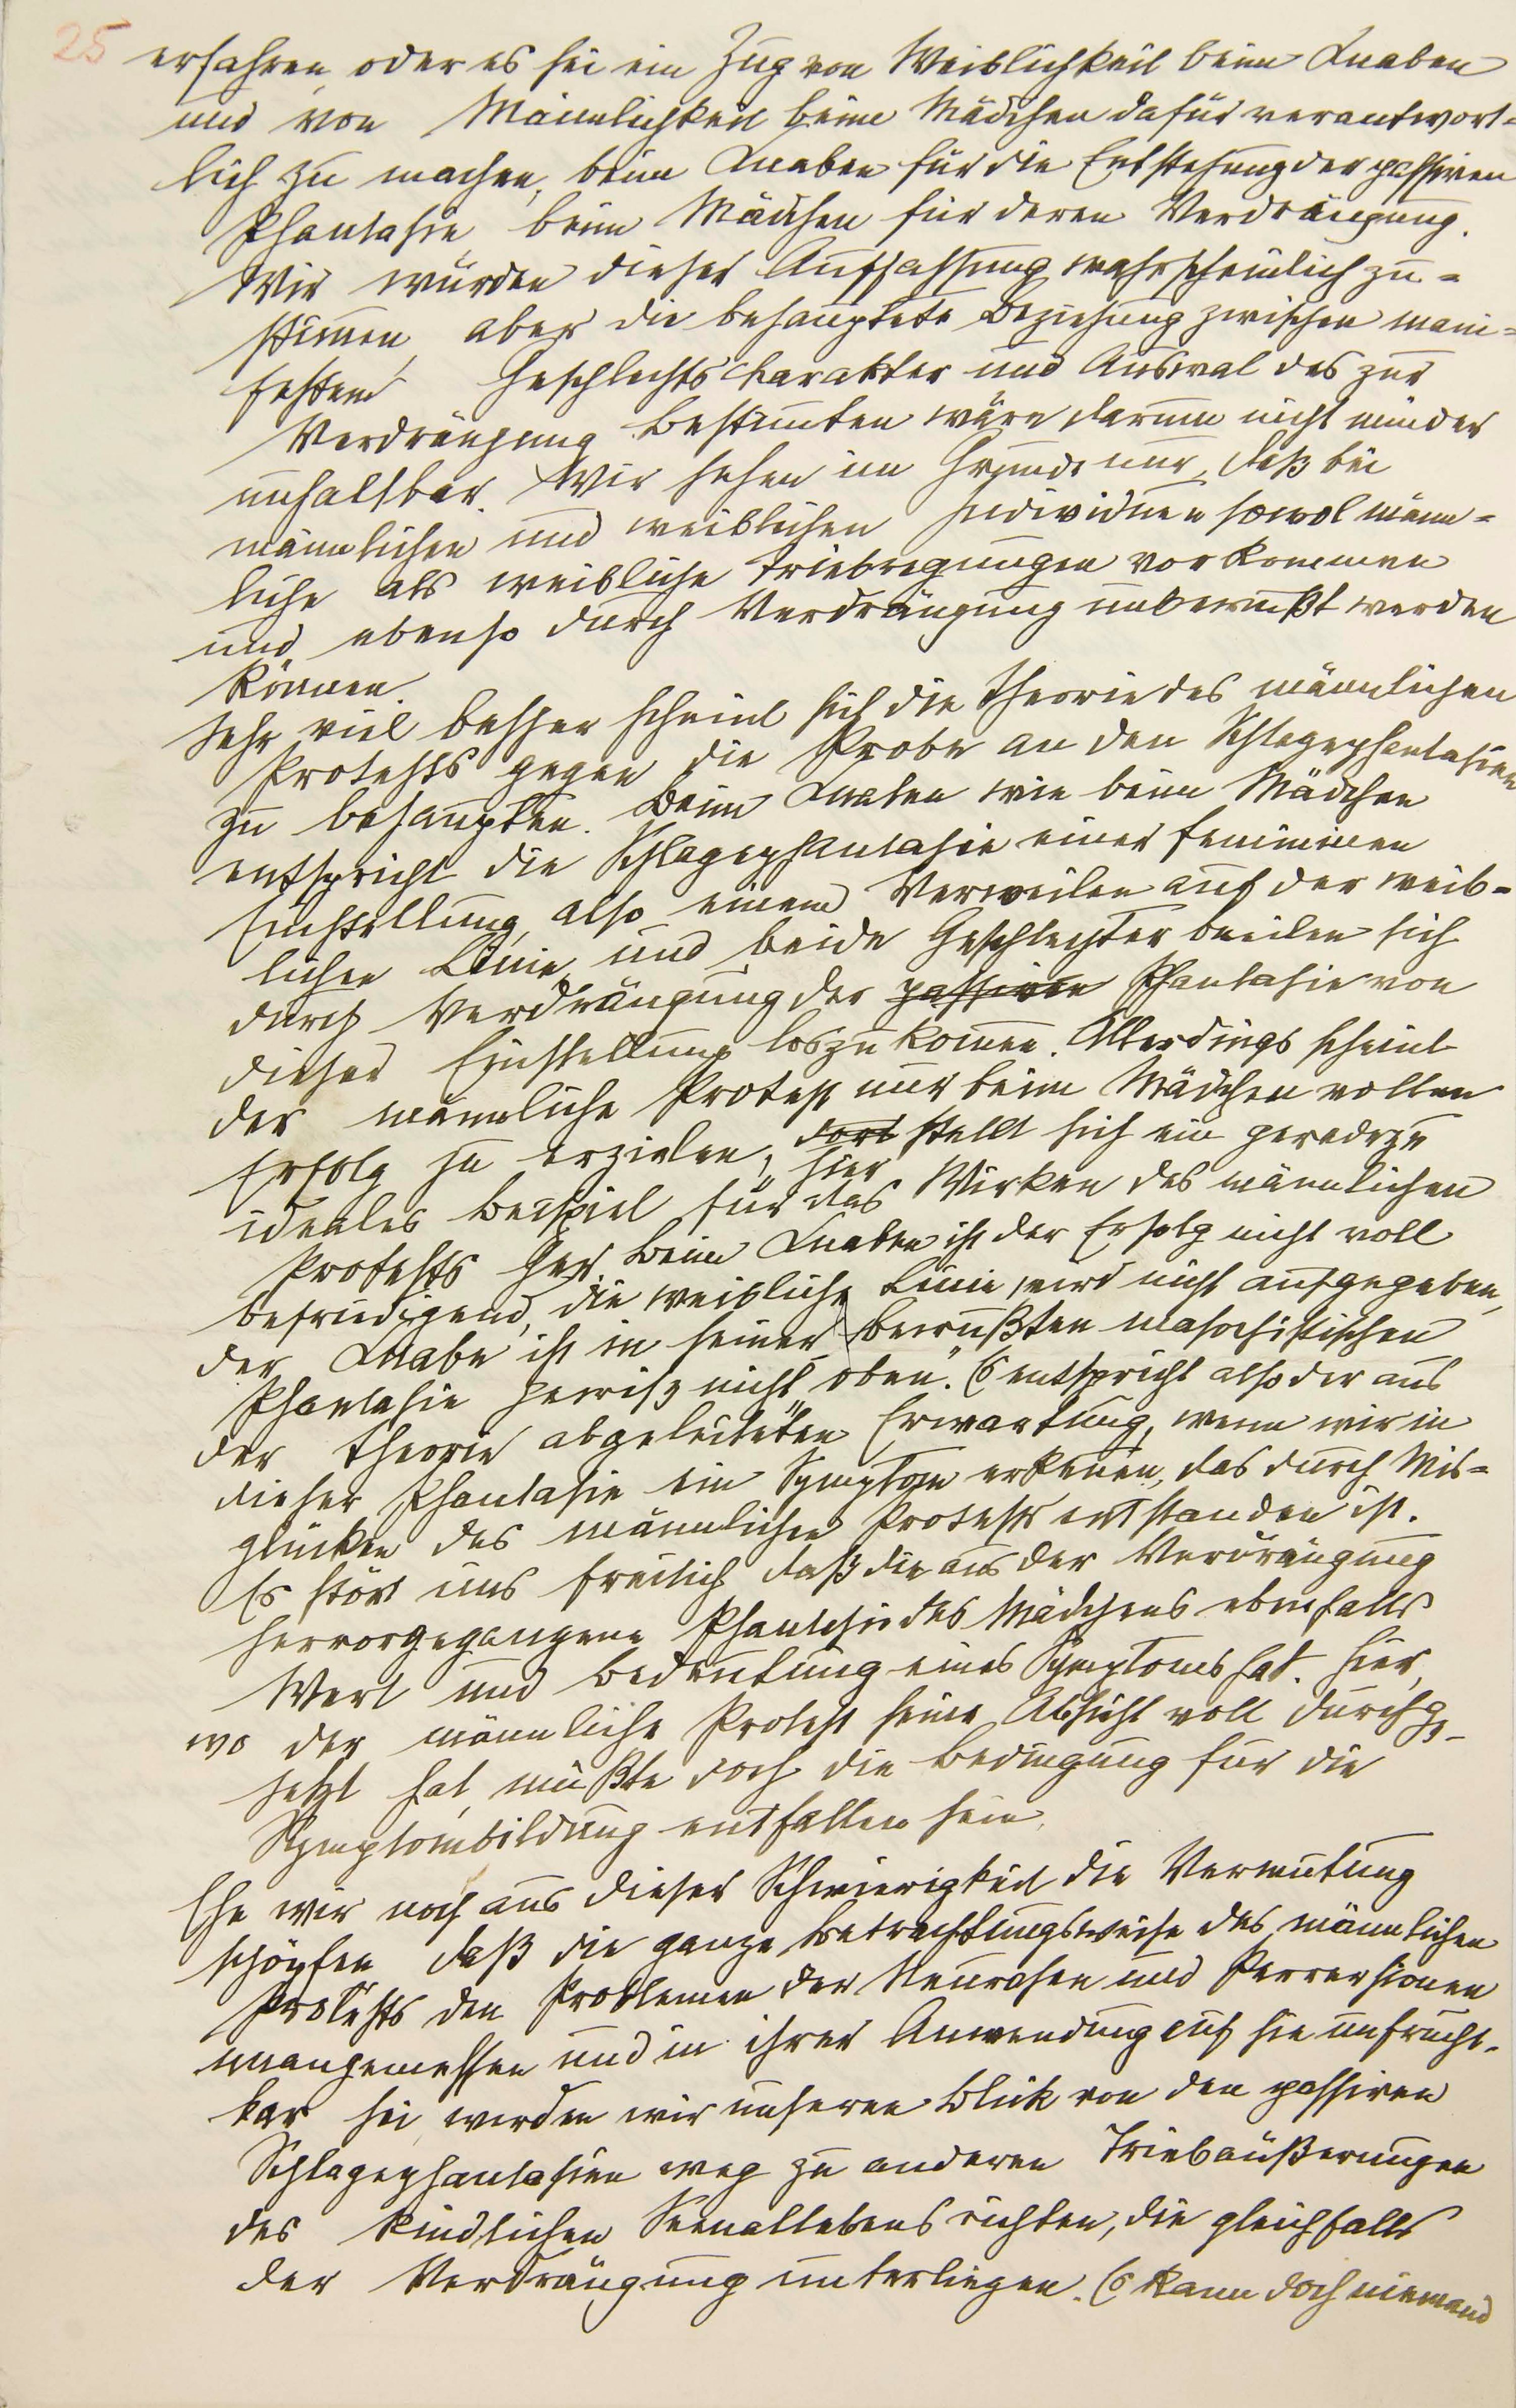 25 erfahren oder es sei ein Zug von Weiblichkeit beim Knaben
und von Männlichkeit beim Mädchen dafür verantwort=
lich zu machen, beim Knaben für die Entstehung der passiven
Phantasie, beim Mädchen für deren Verdrängung.
Wir würden dieser Auffassung wahrscheinlich zu=
stimen, aber die behauptete Beziehung zwischen mani=
festem Geschlechtscharakter und Auswal des zur
Verdrängung Bestimten wäre darum nicht minder
unhaltbar. Wir sehen im Grunde nur, daß bei
männlichen und weiblichen Individuen sowol männ=
liche als weibliche Triebregungen vorkommen
und ebenso durch Verdrängung unbewußt werden
können.
Sehr viel besser scheint sich die Theorie des männlichen
Protests gegen die Probe an den Schlagephantasien
zu behaupten. Beim Knaben wie beim Mädchen
entspricht die Schlagephantasie einer femininen
Einstellung, also einem Verweilen auf der weib=
lichen Linie, und beide Geschlechter beeilen sich
durch Verdrängung der passiven Phantasie von
dieser Einstellung loszukomen. Allerdings scheint
der männliche Protest nur beim Mädchen vollen
Erfolg zu erzielen, dort stellt sich ein geradezu
hier
ideales Beispiel für das Wirken des männlichen
Protests her. Beim Knaben ist der Erfolg nicht voll
befriedigend, die weibliche Linie wird nicht aufgegeben,
der Knabe ist in seiner bewußten masochistischen
Phantasie gewiß nicht „oben“. Es entspricht also der aus
der Theorie abgeleiteten Erwartung, wenn wir in
dieser Phantasie ein Symptom erkenen, das durch Mis=
glücken des männlichen Protests entstanden ist.
Es stört uns freilich daß die aus der Verdrängung
hervorgegangene Phantasie des Mädchens ebenfalls
Wert und Bedeutung eines Symptoms hat. Hier,
wo der männliche Protest seine Absicht voll durchge=
setzt hat, müßte doch die Bedingung für die
Symptombildung entfallen sein.
Ehe wir noch aus dieser Schwierigkeit die Vermutung
schöpfen, daß die ganze Betrachtungsweise des männlichen
Protests den Problemen der Neurosen und Perversionen
unangemessen und in ihrer Anwendung auf sie unfrucht=
bar sei, werden wir unseren Blick von den passiven
Schlagephantasien weg zu anderen Triebäußerungen
des kindlichen Sexuallebens richten, die gleichfalls
der Verdrängung unterliegen. Es kann doch niemand